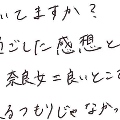 いてますか?
過ごした感想と
奈良女=良いとこ
るつもりじゃなかっ